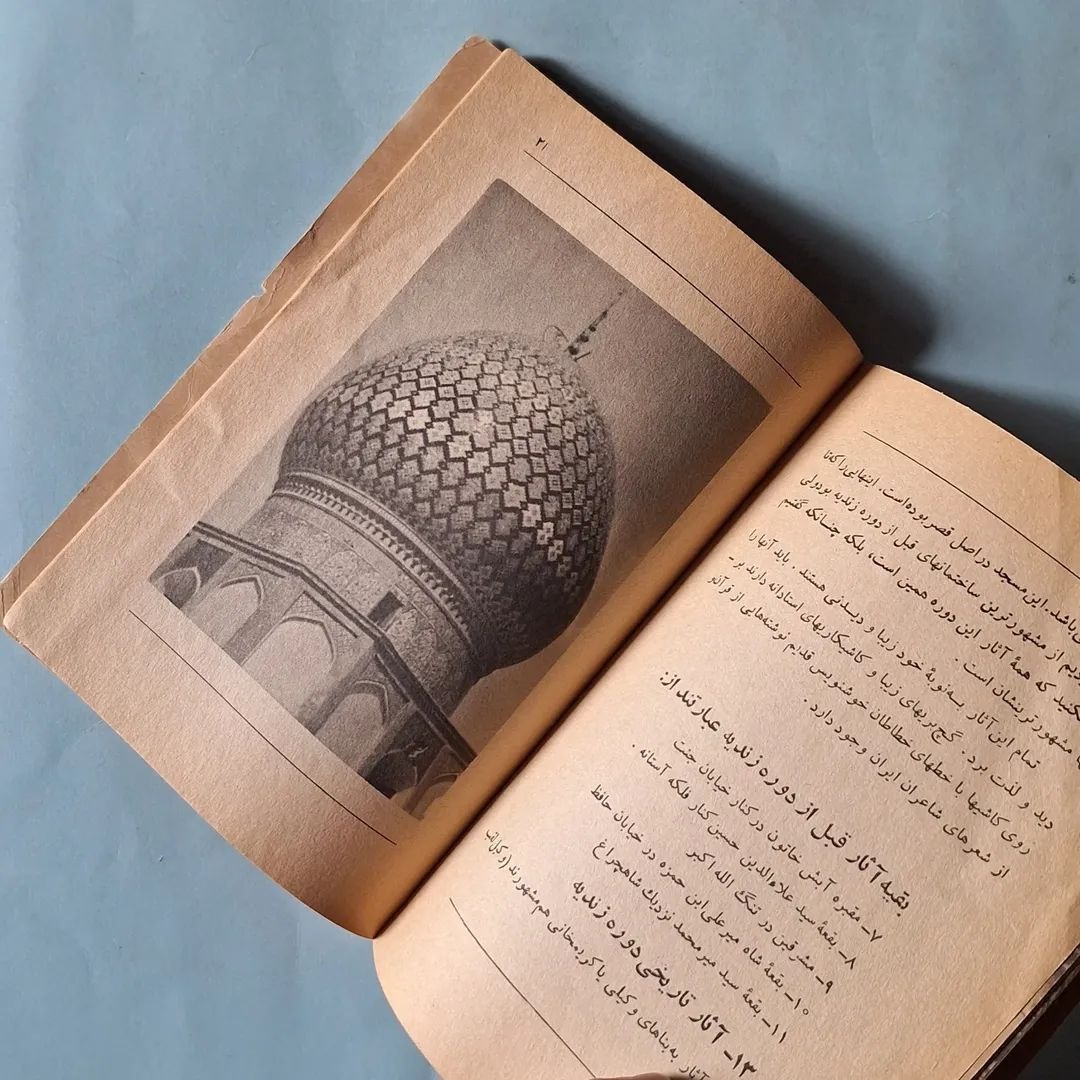 ۲۱
باشد. این مسجد در اصل قصر بوده‌است. اینهایی را که تا
از مشهورترین ساختمانهای قبل از دوره زندیه بود ولی
کنید که همهٔ آثار این دوره همین است، بلکه چنانکه گفتیم
مشهورترینشان است.
تمام این آثار به‌نوبهٔ خود زیبا و دیدنی هستند. باید آنها را
دید و لذت برد. گچ‌بریهای زیبا و کاشیکاریهای استادانه دارند بر-
روی کاشیها با خطهای خطاطان خوشنویس قدیم نوشته‌هایی از قرآن و
از شعرهای شاعران ایران وجود دارد.
بقیه آثار قبل از دوره زندیه عبارتند از:
۷- مقبره آبش خاتون در کنار خیابان جنت
۸- بقعهٔ سید علاءالدین حسین کنار فلکه آستانه.
۹- مشرقین در تنگ الله اکبر
۱۰- بقعهٔ شاه میرعلی ابن حمزه در خیابان حافظ
۱۱- بقعهٔ سید میرمحمد نزدیک شاهچراغ
۱۳- آثار تاریخی دوره زندیه
آثار به بناهای وکیلی یا کریمخانی هم مشهورند (وکیل لقب